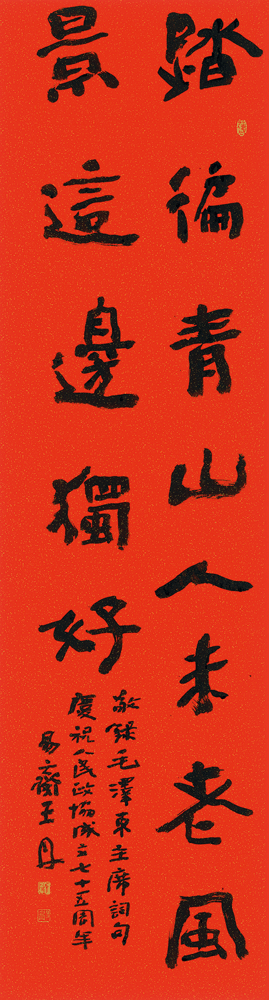 踏徧青山人未老風
景這邊獨好
敬錄毛澤東主席詞句
慶祝人民政協成立七十五周年
易齋王丹